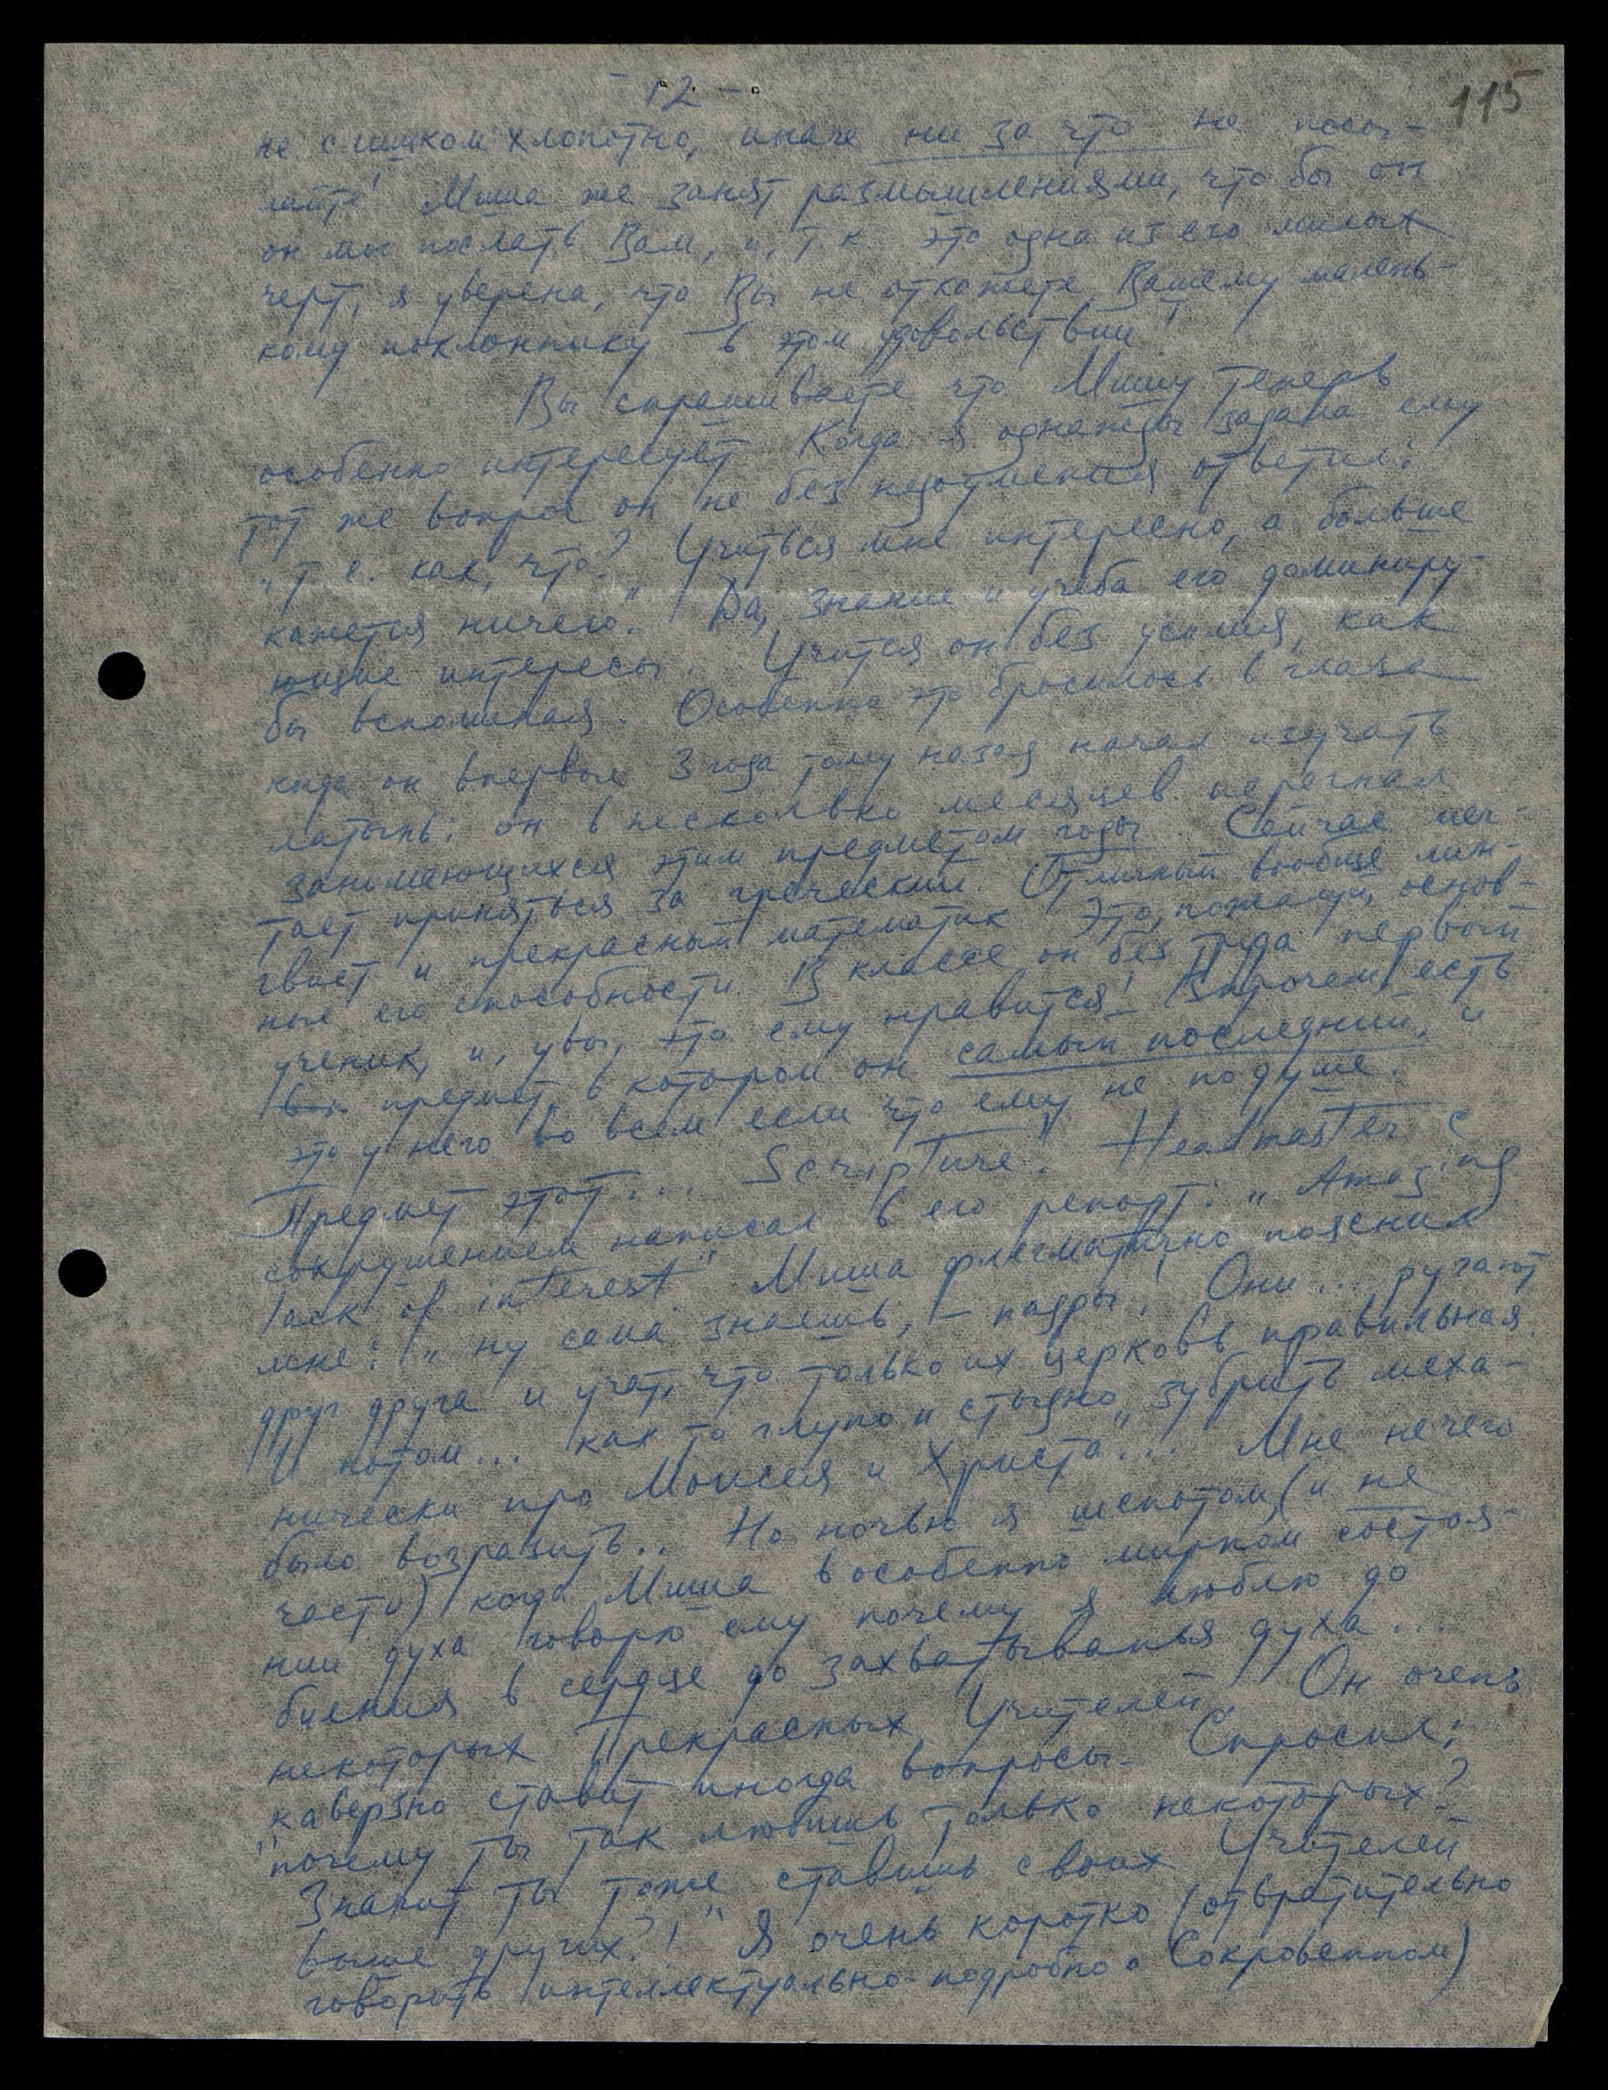 - 12 -
115
не слишком хлопотно, иначе ни за что не посы-
лайте! Миша же занят размышлениями, что бы он
он мог послать Вам, и, т.к. это одна из его милых
черт, я уверена, что Вы не откажете Вашему малень-
кому поклоннику в этом удовольствии!
Вы спрашиваете что Мишу теперь
особенно интересует. Когда я однажды задала ему
тот же вопрос он не без изумления ответил:
„т.е. как, что? Учиться мне интересно, а больше
кажется ничего." Да, знание и учеба его доминиру-
ющие интересы. Учится он без усилия, как
бы вспоминая. Особенно это бросилось в глаза
когда он впервые 3 года тому назад начал изучать
латынь: он в несколько месяцев перегнал
занимающихся этим предметом годы. Сейчас меч-
тает приняться за греческий. Отличный вообще лин-
гвист и прекрасный математик. Это, пожалуй, основ-
ные его способности. В классе он без труда первый
ученик, и, увы, это ему нравится! Впрочем, есть
предмет, в котором он самый последний, и
это у него во всем если что ему не по душе.
Предмет этот... Scripture. Headmaster с
сокрушением написал в его репорт: „Amazing
lack of interest". Миша флегматично пояснил
мне: „ну сама знаешь, – падры! Они.. ругают
друг друга и учат, что только их церковь правильная.
И потом... как то глупо и стыдно „зубрить" меха-
нически про Моисея и Христа... Мне нечего
было возразить.. Но ночью я шепотом, (и не
часто) когда Миша в особенно мирном состоя-
нии духа говорю ему почему я люблю до
биения в сердце до захватыванья духа...
некоторых Прекрасных Учителей. Он очень
каверзно ставит иногда вопросы. Спросил:
„почему ты так любишь только некоторых?
Значит ты тоже ставишь своих Учителей
выше других?!" Я очень коротко (отвратительно
говорить интеллектуально-подробно о Сокровенном)